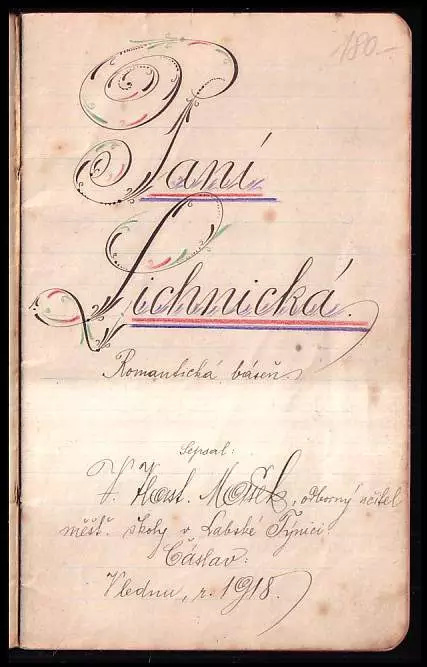 180.-
Paní
Lichnická.
Romantická báseň.
Sepsal:
V. Host. Mošek, odborný učitel
měšť. školy v Labské Týnici.
Čáslav:
V lednu, r. 1918.